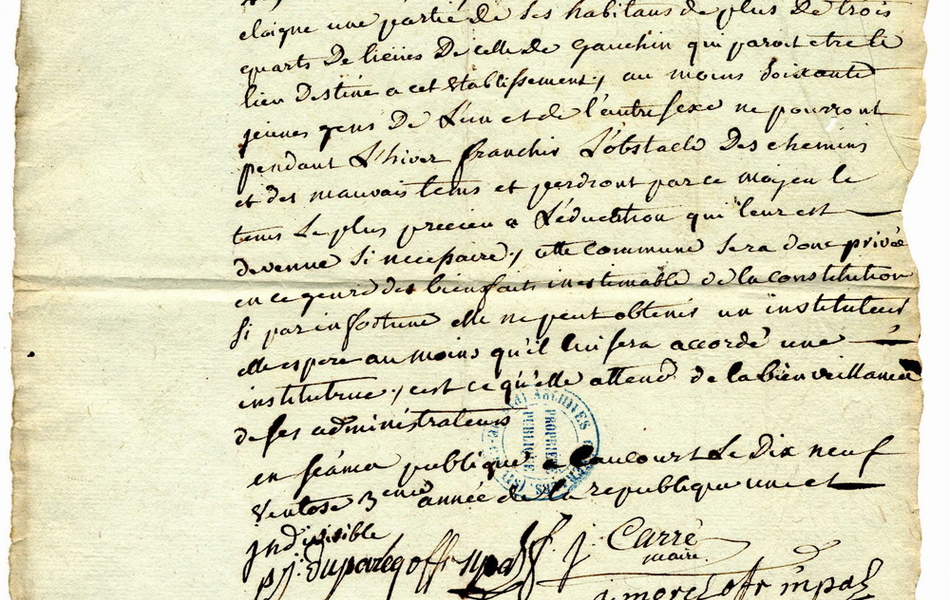 eloigne une partie de ses habitans de plus de trois
quarts de lieües de celle de Gauchin qui paroit etre le
lieu destiné a cet etablissement, au moins soixante
jeunes gens de l'un et de l'autre sexe ne pourront
pendant l'hiver franchir l'obstacle des chemins
et des mauvais tems et perdront par ce moyen le
tems le plus precieu a l'éducation qui leur est
devenue si necessaire, cette commune sera donc privée
en ce genre des bienfaits inestimable de la constitution
si par infortune elle ne peut obtenir un instituteur
elle espere au moins qu'il lui sera accordé une
institutrice, c'est ce qu'elle attend de la bienveillance
de ses administrateurs
en séance publique a Caucourt le dix neuf
Ventose 3eme année de la republique une et
indivisible
ARCHIVES
PROPRIÉTÉ
PUBLIQUE
pj. duparcq offr mpal j. Carré
maire
offr mpal